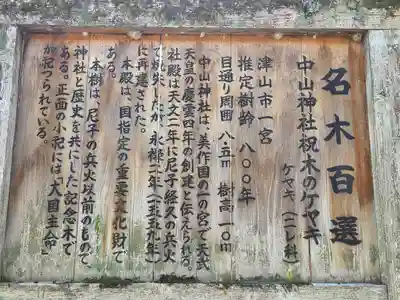 名木百選
中山神社祝木のケヤキ
ケヤキ(ニレ科)
津山市一宮
推定樹齢 八〇〇年
目通り周囲 八・五m 樹高一〇m
中山神社は、美作国の一の宮で天武
天皇の慶雲四年の創建と伝えられる。
社殿は天文二年に尼子経久の兵火
で焼失したが、永禄二年(一五五九年)
に再建された。
本殿は、国指定の重要文化財で
ある。
本樹は、尼子の兵火以前のもので、
神社と歴史を共にした記念木で
ある。正面の小祀には「大国主命」
が祀つられている。